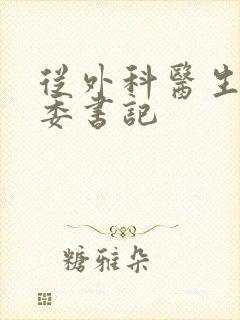 從外科醫生
委書記
糖雅朵